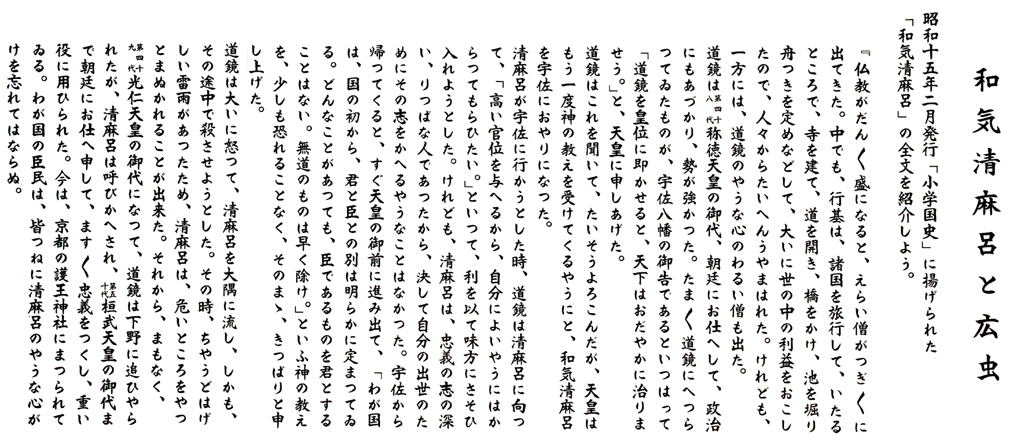 和気清麻呂と広虫
昭和十五年二月発行「小学国史」に揚げられた
「和気清麻呂」の全文を紹介しよう。
『仏教がだん〱盛になると、えらい僧がつぎ〱に
出てきた。中でも、行基は、諸国を旅行して、いたる
ところで、寺を建て、道を開き、橋をかけ、池を堀り
舟つきを定めなどして、大いに世の中の利益をおこし
たので、人々からたいへんうやまはれた。けれども、
一方には、道鏡のやうな心のわるい僧も出た。
道鏡は第四十八代称徳天皇の御代、朝廷にお仕へして、政治
にもあづかり、勢が強かつた。たま〱道鏡にへつら
つてゐたものが、宇佐八幡の御告であるといつはって
「道鏡を皇位に即かせると、天下はおだやかに治りま
せう。」と、天皇に申しあげた。
道鏡はこれを聞いて、たいそうよろこんだが、天皇は
もう一度神の教えを受けてくるやうにと、和気清麻呂
を宇佐におやりになつた。
清麻呂が宇佐に行かうとした時、道鏡は清麻呂に向つ
て、「高い官位を与へるから、自分によいやうにはか
らつてもらひたい。」といつて、利を以て味方にさそひ
入れようとした。けれども、清麻呂は、忠義の志の深
い、りつぱな人であつたから、決して自分の出世のた
めにその志をかへるやうなことはなかつた。宇佐から
帰つてくると、すぐ天皇の御前に進み出て、「わが国
は、国の初から、君と臣との別は明らかに定まつてゐ
る。どんなことがあつても、臣であるものを君とする
ことはない。無道のものは早く除け。」といふ神の教え
を、少しも恐れることなく、そのまゝ、きつぱりと申
し上げた。
道鏡は大いに怒つて、清麻呂を大隅に流し、しかも、
その途中で殺させようとした。その時、ちやうどはげ
しい雷雨があつたため、清麻呂は、危いところをやつ
とまぬかれることが出来た。それから、まもなく、
第四十九代光仁天皇の御代になつて、道鏡は下野に追ひやら
れたが、清麻呂は呼びかへされ、第五十代桓武天皇の御代ま
で朝廷にお仕へ申して、ます〱忠義をつくし、重い
役に用ひられた。今は、京都の護王神社にまつられて
ゐる。わが国の臣民は、皆つねに清麻呂のやうな心が
けを忘れてはならぬ。